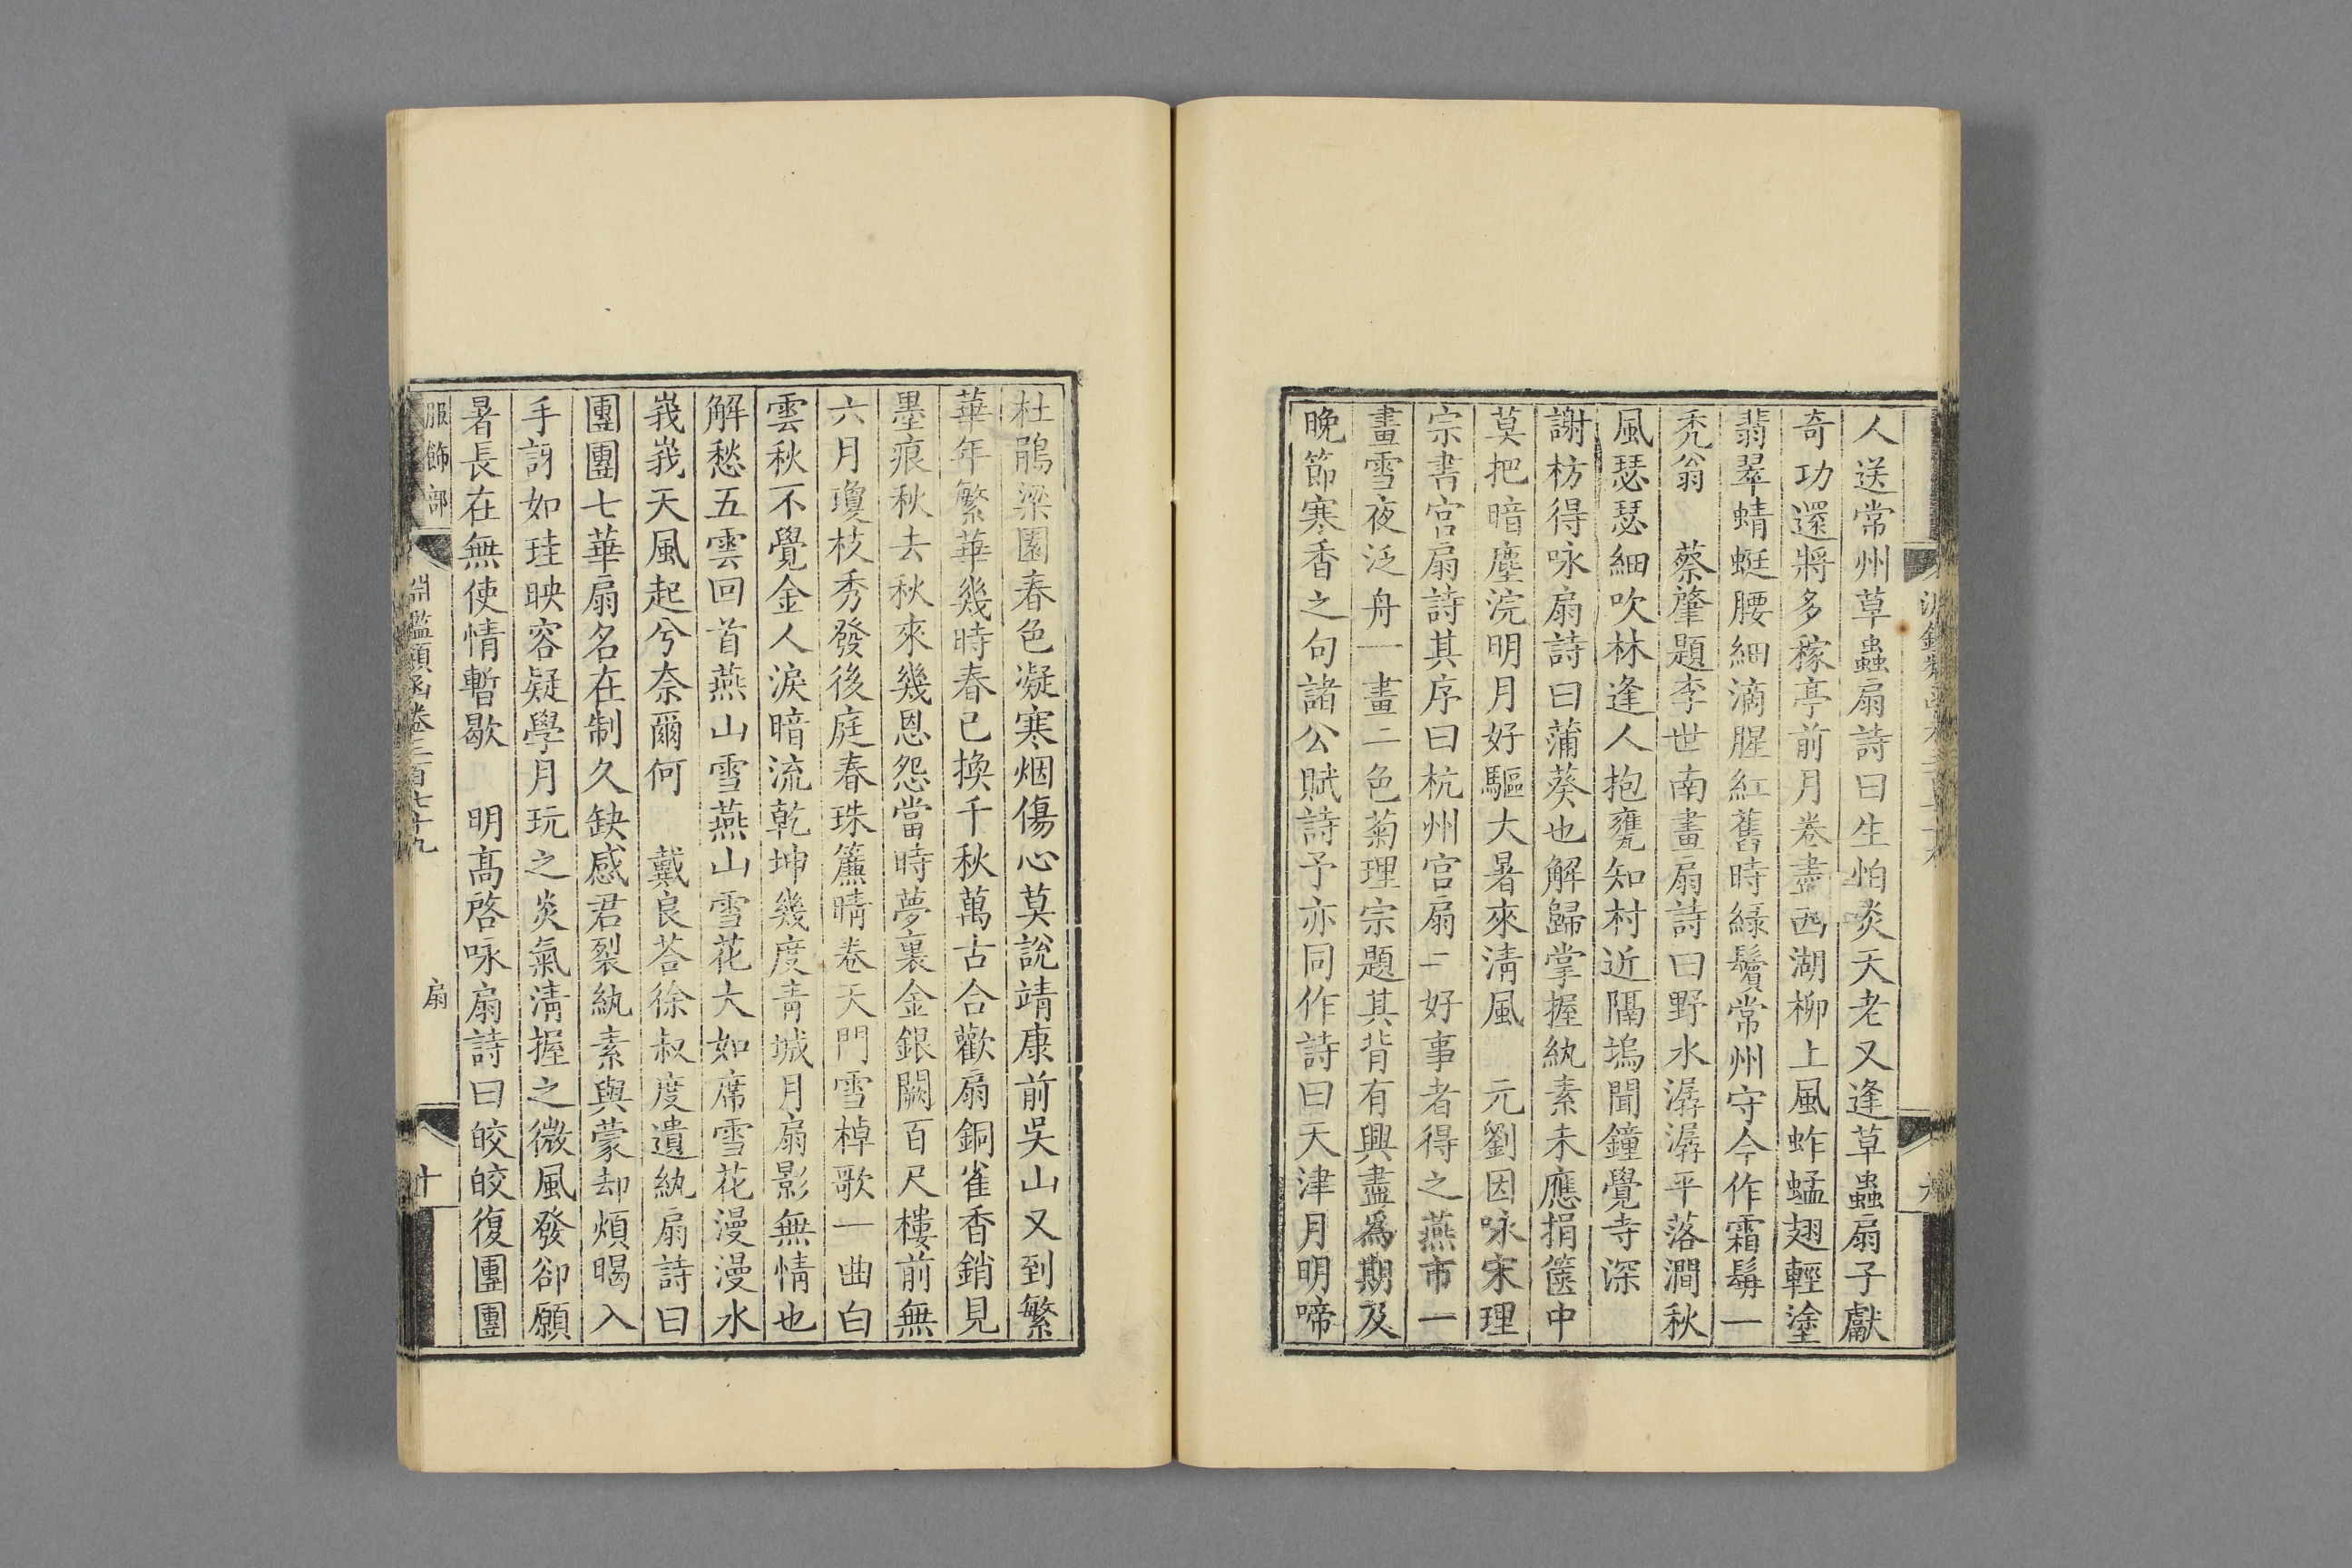 人送常州草蟲扇詩曰生怕炎天老又逢草蟲扇子獻
奇功還將多稼亭前月卷盡西湖柳上風蚱蜢翅輕塗
翡翠蜻蜓腰細滴腥紅舊時綠鬢常州守今作霜髯一
禿翁 蔡肇題李世南畫扇詩曰野水潺潺平落澗秋
風瑟瑟細吹林逢人抱甕知村近隔塢聞鐘覺寺深
謝枋得咏扇詩曰蒲葵也解歸掌握紈素未應捐篋中
莫把暗塵浣明月好驅大暑來清風 元劉因咏宋理
宗書宮扇詩其序曰杭州宮扇二好事者得之燕市一
畫雪夜泛舟一畫二色菊理宗題其背有興盡爲期及
晚節寒香之句諸公賦詩予亦同作詩曰天津月明啼
杜鵑梁園春色凝寒烟傷心莫說靖康前吳山又到繁
華年繁華幾時春已換千秋萬古合歡扇銅雀香銷見
墨痕秋去秋來幾恩怨當時夢裏金銀闕百尺樓前無
六月瓊枝秀發後庭春珠簾晴卷天門雪棹歌一曲白
雲秋不覺金人淚暗流乾坤幾度青城月扇影無情也
解愁五雲回首燕山雪燕山雪花大如席雪花漫漫水
峩峩天風起兮奈爾何 戴良荅徐叔度遺紈扇詩曰
團團七華扇名在制久缺感君裂紈素與蒙却煩暍入
手訝如珪映容疑學月玩之炎氣清握之微風發卻願
暑長在無使情暫歇 明高啓咏扇詩曰皎皎復團團
服飾部 淵鑑類函卷三百七十九 扇 十